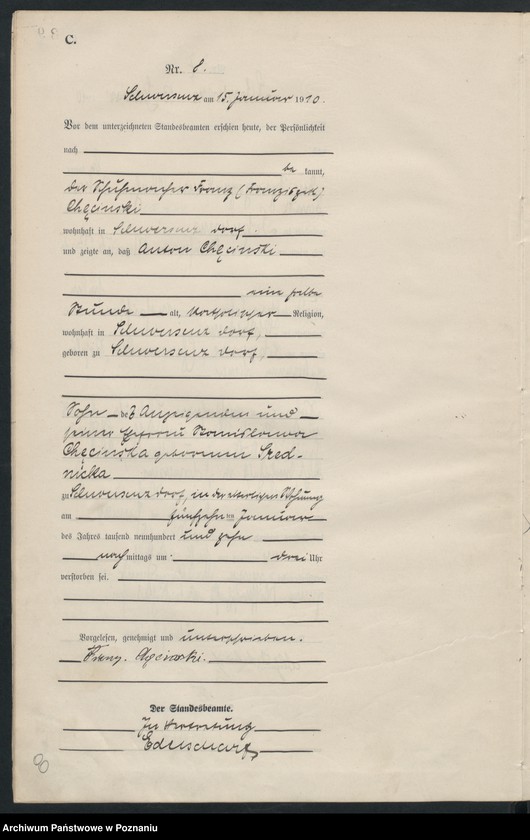 C.
Nr. 8.
Schwersenz am 15. Januar 1910.
Vor dem unterzeichneten Standesbeamten erschien heute, der Persönlichkeit
nach
be kannt,
der Schuhmacher Franz (Franziszek)
Chęcinski
wohnhaft in Schwersenz dorf
und zeigte an, daß Anton Chęcinski
eine halbe
Stunde alt, katholischer Religion,
wohnhaft in Schwersenz dorf,
geboren zu Schwersenz dorf,
Sohn des Anzeigenden und
seiner Ehefrau Stanislawa
Chęcinska geborenen Sred-
nicka
zu Schwersenz dorf, in der elterlichen Wohnung
am fünfzehnten Januar
des Jahres tausend neunhundert und zehn
nachmittags um drei Uhr
verstorben sei.
Vorgelesen, genehmigt und unterschrieben.
Franz.
Der Standesbeamte.
In Vertretung
8
Archiwum Państwowe w Poznaniu